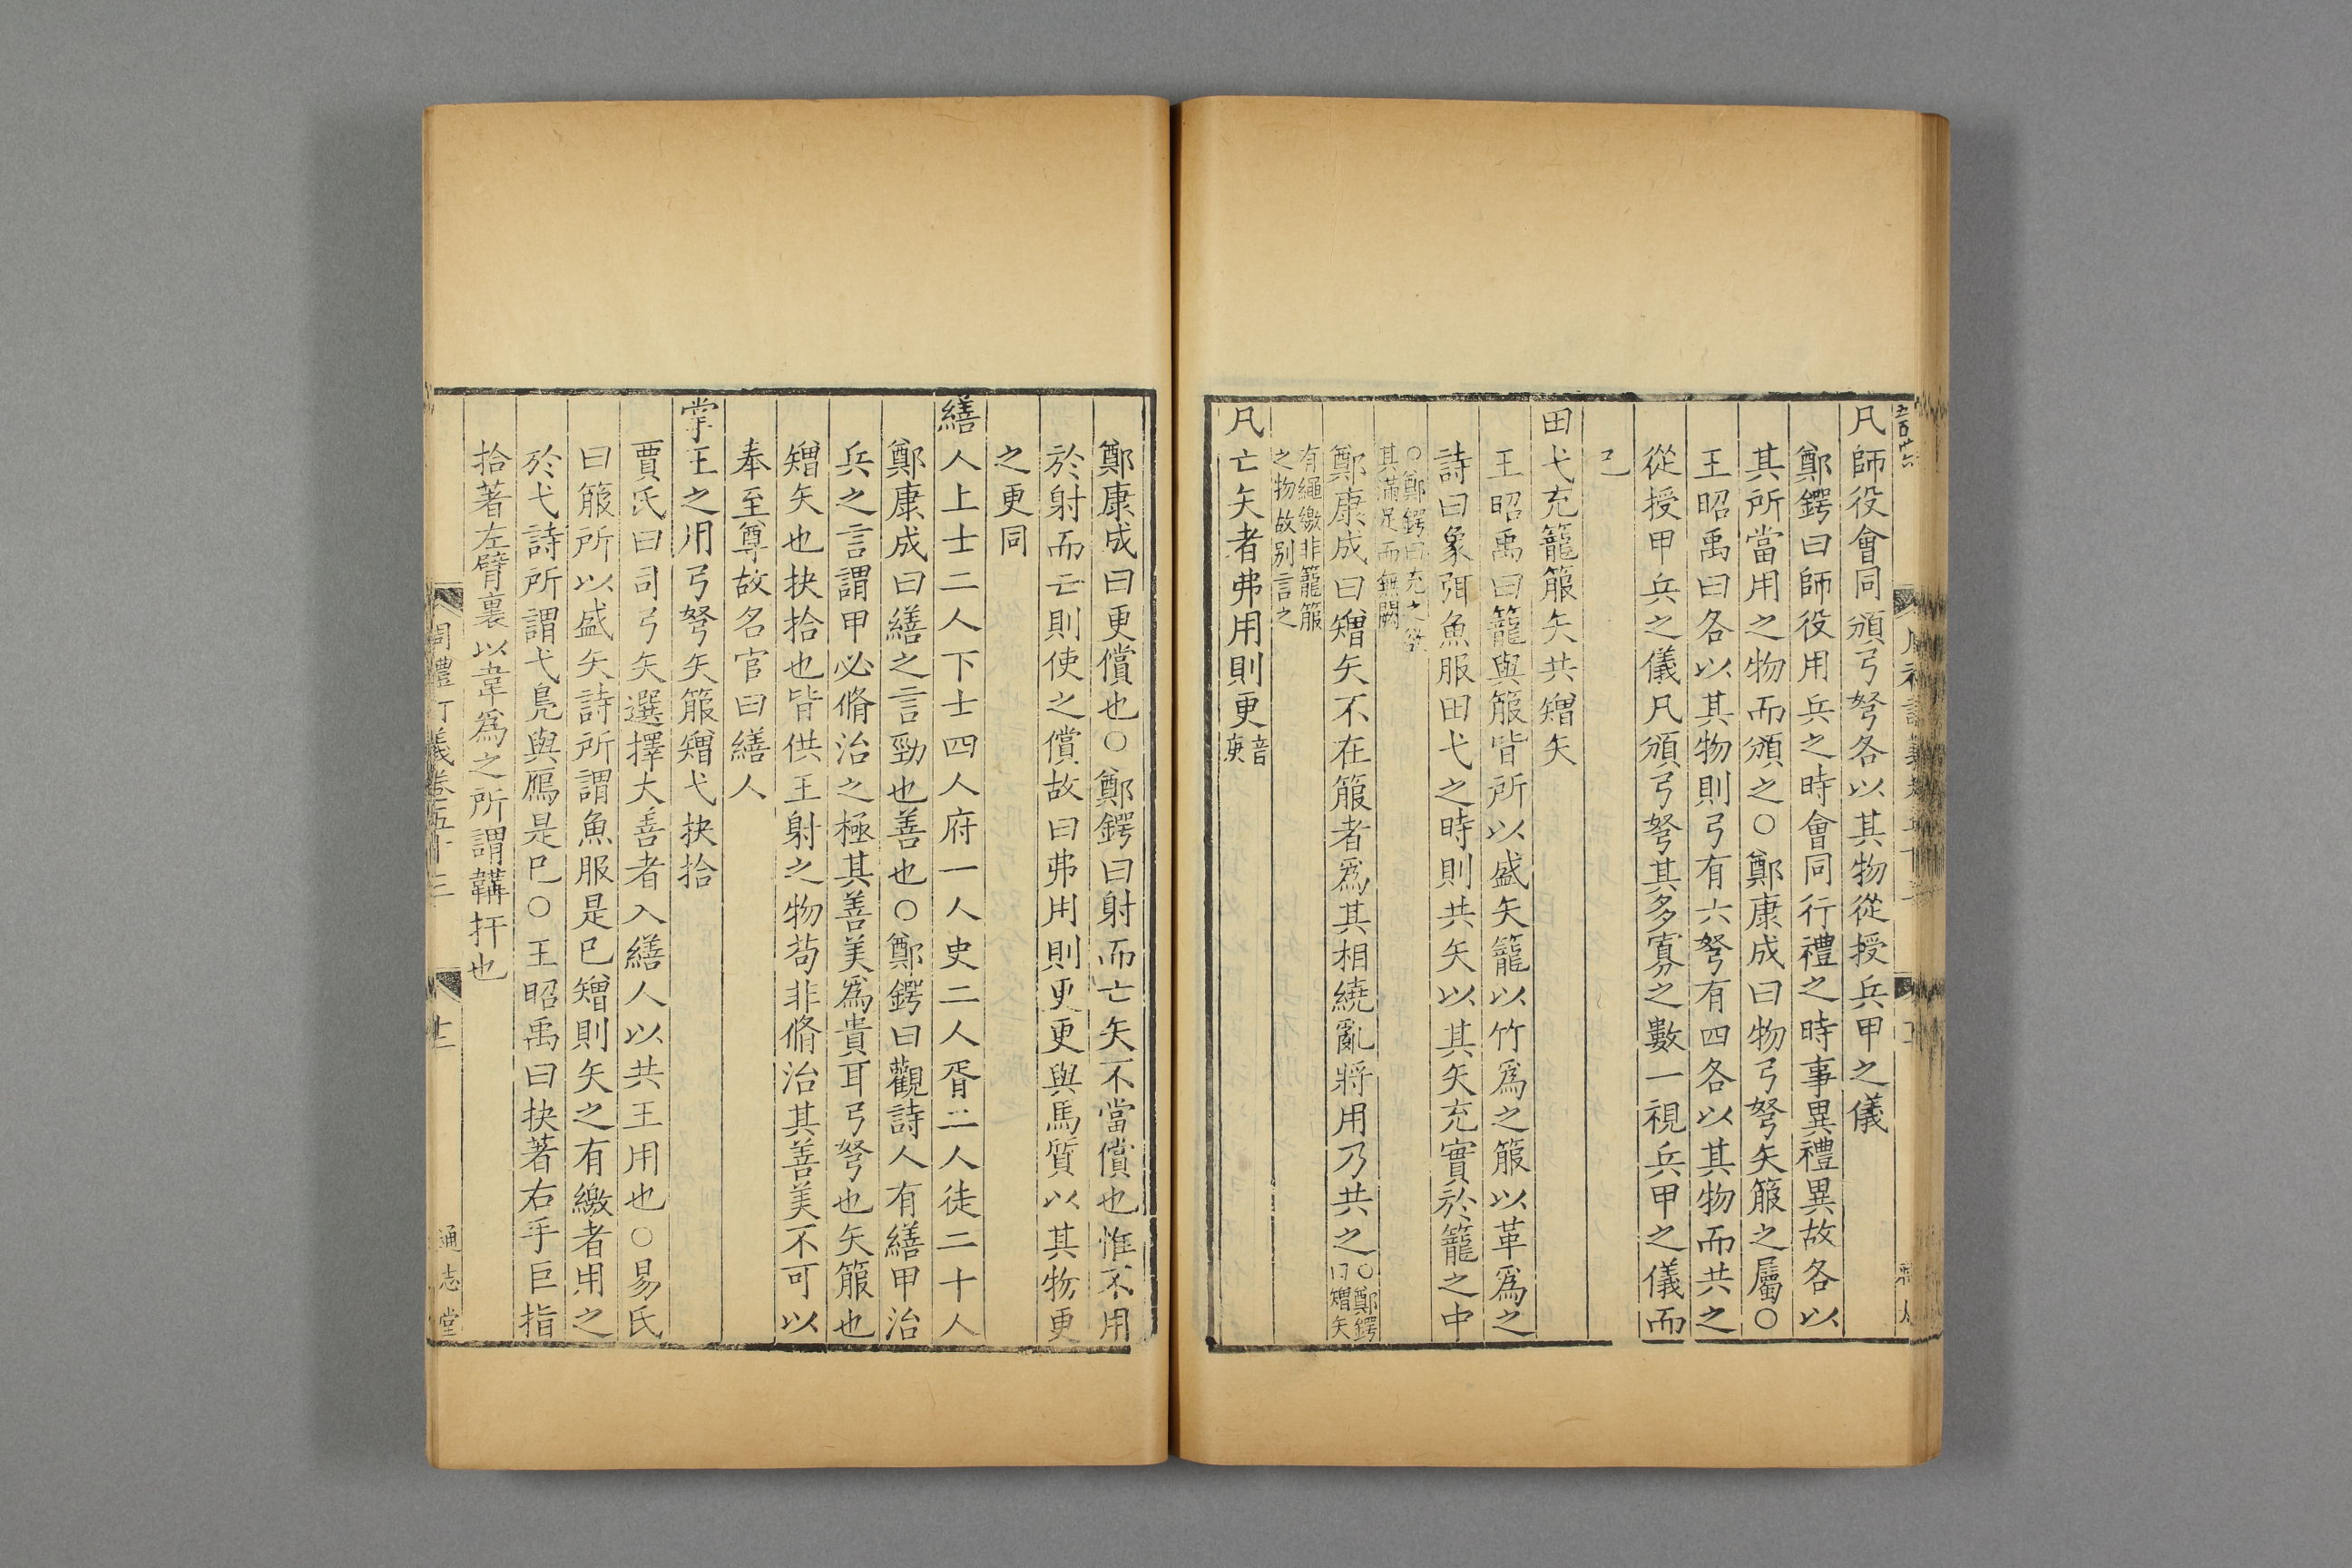 凡師役會同頒弓弩各以其物從授兵甲之儀
鄭鍔曰師役用兵之時會同行禮之時事異禮異故各以
其所當用之物而頒之○鄭康成曰物弓弩矢箙之屬○
王昭禹曰各以其物則弓有六弩有四各以其物而共之
從授甲兵之儀凡頒弓弩其多寡之數一視兵甲之儀而
已
田弋充籠箙矢共矰矢
王昭禹曰籠與箙皆所以盛矢籠以竹爲之箙以革爲之
詩曰象弭魚服田弋之時則共矢以其矢充實於籠之中
○鄭鍔曰充之欲
其滿足而無闕
鄭康成曰矰矢不在箙者爲其相繞亂將用乃共之○鄭鍔
曰矰矢
有繩繳非籠箙
之物故别言之
凡亡矢者弗用則更音
庚
鄭康成曰更償也○鄭鍔曰射而亡矢不當償也惟不用
於射而亡則使之償故曰弗用則更更與馬質以其物更
之更同
繕人上士二人下士四人府一人史二人胥二人徒二十人
鄭康成曰繕之言勁也善也○鄭鍔曰觀詩人有繕甲治
兵之言謂甲必脩治之極其善美爲貴耳弓弩也矢箙也
矰矢也抉拾也皆供王射之物苟非脩治其善美不可以
奉至尊故名官曰繕人
掌王之用弓弩矢箙矰弋抉拾
賈氏曰司弓矢選擇大善者入繕人以共王用也○易氏
曰箙所以盛矢詩所謂魚服是巳矰則矢之有繳者用之
於弋詩所謂弋鳧與鴈是巳○王昭禹曰抉著右手巨指
拾著左臂裏以韋爲之所謂韝扞也
周禮訂義卷五十三
十二
通志堂